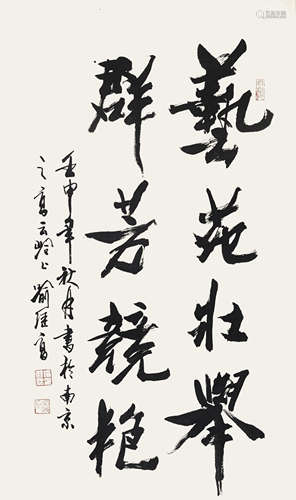 藝苑壯舉
群芳競艳
壬申年秋月書於南京
之高云岭上喻继高